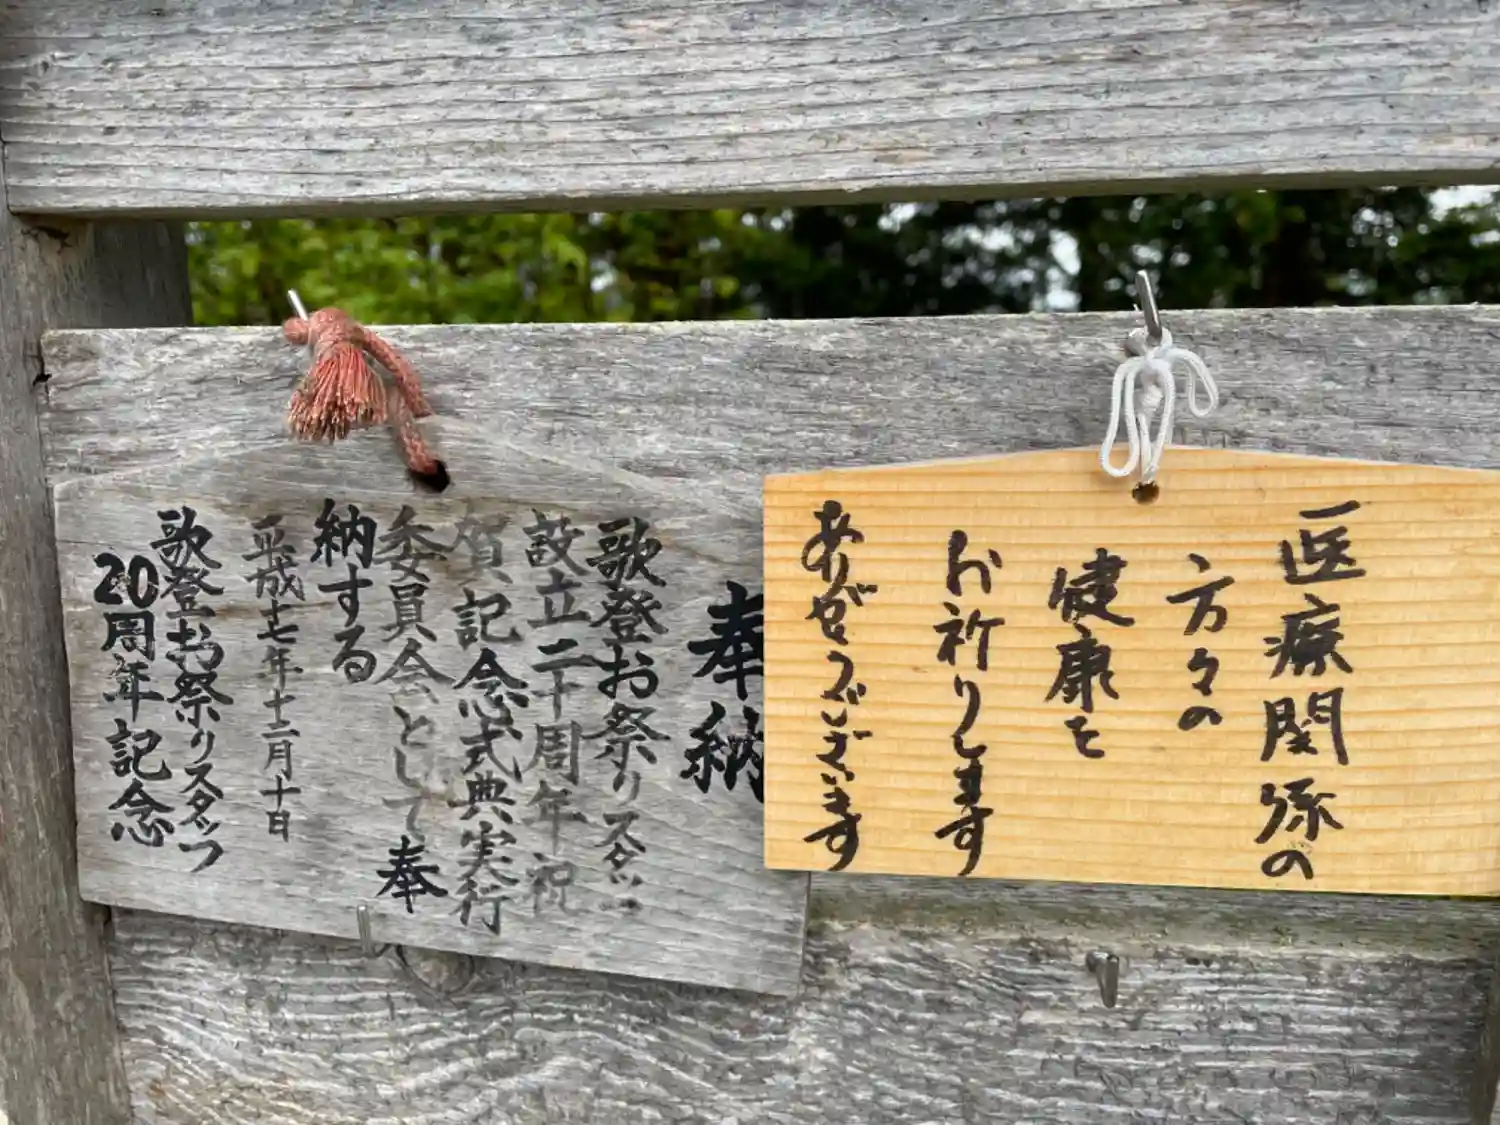 奉納
歌登お祭りスタッ
設立二十周年祝
賀、記念式典実行
委員会として奉
納する
平成十七年十二月十日
歌登お祭りスタッフ
20周年記念
医療関係の
方々の
健康を
お祈りします
ありがとうございます